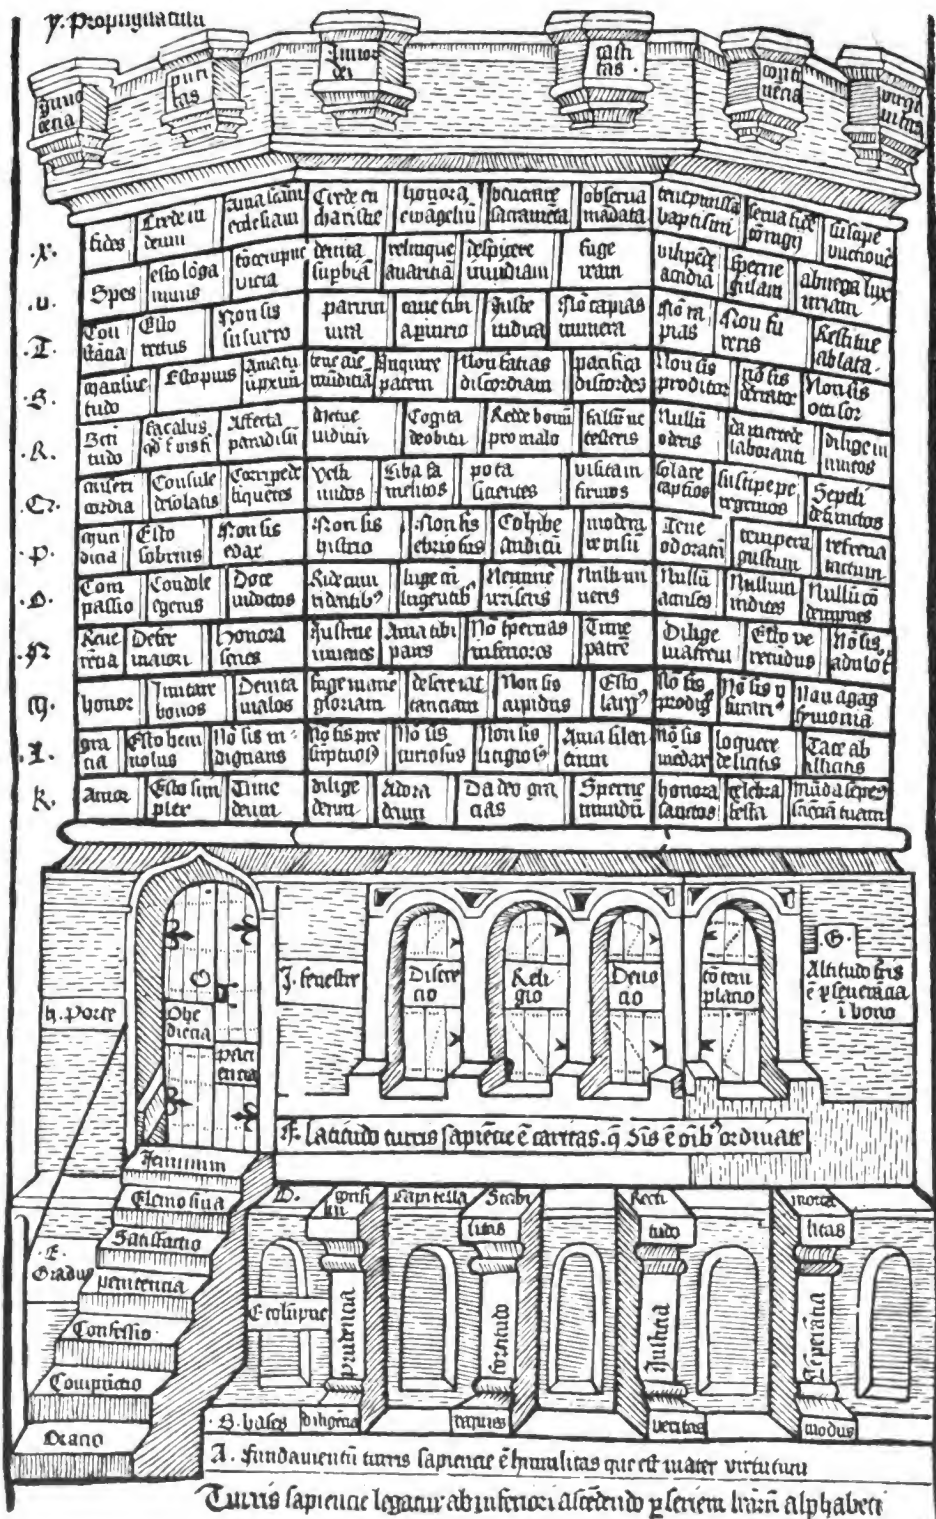 y. Propugnacula
Inno
cecia
puri
tas
Timor
dei
casti
tas.
conti
necia
virgi
nitas
.x. fides | Crede in
deum | Ama scam
ecclesiam | Crede eu
charistie | honora
ewagelin | venerare
sacrameta | observa
madata | baptismi | serva fide
coniugij | suscipe
unctione
.u. Spes | esto loga
nimis | vicia | devita
supbia | relinque
avaricia | despicere
invidiam | fuge
iram | vilipede
accidia | sperne
gulam | abnega lux
uriam
.T. Con
stacia | Esto
rectus | Non sis
susurro | parum
iura | cave tibi
a piurio | iuste
iudica | No capias
munera | No ra
pias | Non fu
reris | Restitue
ablata.
.S. mansue
tudo | Esto pius | Ama tu
u pxim | Inquire
pacem | Non facias
discordiam | pacifica
discordes | Non sis
proditor | no sis | Non sis
occisor
.R. Recti
tudo | Affecta
paradisu | metue
iudiciu | Cogita
de obitu | Redde bonu
pro malo | falsu ne
testeris | Nullu
oderis | da mercede
laboranti | dilige in
imicos
.Q. miseri
cordia | Consule
desolatis | Corripe de
liquetes | Vesti
nudos | Ciba fa
melicos | pota
sicientes | visita in
firmos | solare
captios | suscipe pe
regrinos | Sepeli
defunctos
.P. mun
dicia | Esto
sobrius | Non sis
edax | Non sis
histrio | Non sis
ebriosus | Cohibe
auditu | modera
re visu | Tene
odoratu | tempera
gustum | refrena
tactum
.O. Com
passio | Condole
egenis | Doce
indoctos | Ride cum
ridentib9 | luge cu
lugentib9 | Nemine
irriseris | Nulli in
| Nullu
acuses | Nullum
iudices | Nullu co
dempnes
.N. Reve
recia | Defer
maiori | Honora
senes | Instrue
iuvenes | Ama tibi
pares | No spernas
inferiores | Time
patre | Dilige
matrem | Esto ve
recudus | No sis
adulator
.M. honor | Imitare
bonos | Devita
malos | fuge inane
gloriam | desere iac
tanciam | Non sis
cupidus | Esto
larg9 | No sis
prodig9 | No sis | Non agas
symonia
.L. gra
cia | Esto beni
volus | No sis in
dignans | No sis pre
suptuos9 | No sis
curiosus | Non sis
litigios9 | Ama silen
cium | No sis
medax | loquere
de licitis | Tace ab
illicitis
K. Amor | Esto sim
plex | Time
deum | dilige
deum | Adora
deum | Da deo gra
cias | Sperne
mundu | honora
sanctos | celebra
festa | mada
tuam
h. Porte
Obe
diecia
paci
encia
J. fenestre
Discre
cio
Reli
gio
Devo
cio
cotem
placio
.G.
Altitudo turris
e pseveracia
i bono
F. latitudo turris sapiecie e caritas. q e oib9 ordinate
Ieiunium
Elemosina
Satisfactio
penitencia
Confessio.
Compuctio
Oracio
.E.
Gradus
D.
Capitella
Stabi
litas
Recti
tudo
litas
C colupne
prudencia
fortitudo
Justicia
Teperacia
.B. bases
diligecia
requies
veritas
modus
A. fundamentu turris sapiencie e humilitas que est mater virtutum
Turris sapiencie legatur ab inferiori ascededo p seriem lraru alphabeti